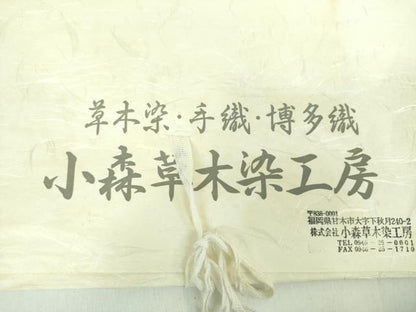 草木染・手織・博多織
小森草木染工房
〒838-0001
福岡県甘木市大字下秋月240-2
株式会社 小森草木染工房
TEL 0946
FAX 0946